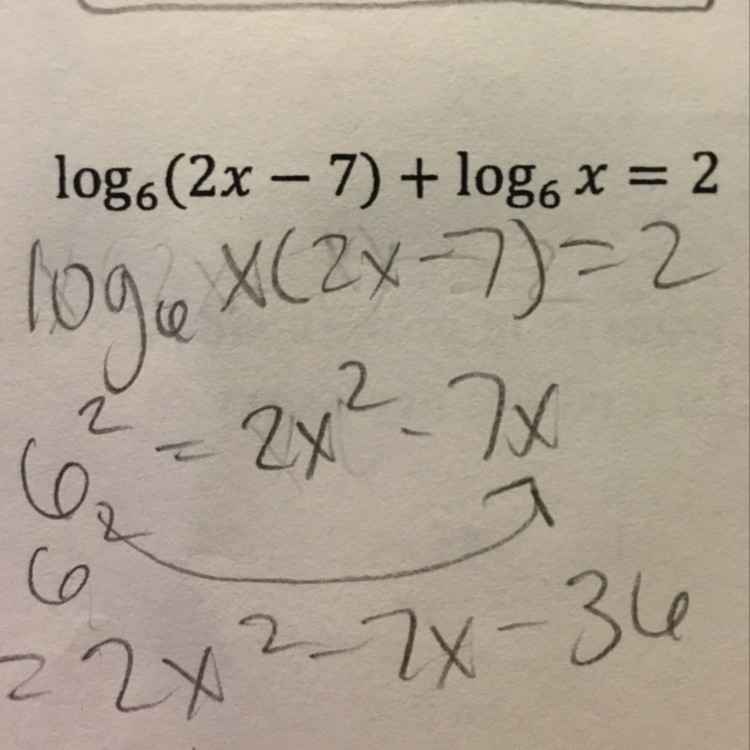 log₆(2x − 7) + log₆ x = 2
log₆ x(2x-7) = 2
6² = 2x² - 7x
6²
= 2x² - 7x - 36